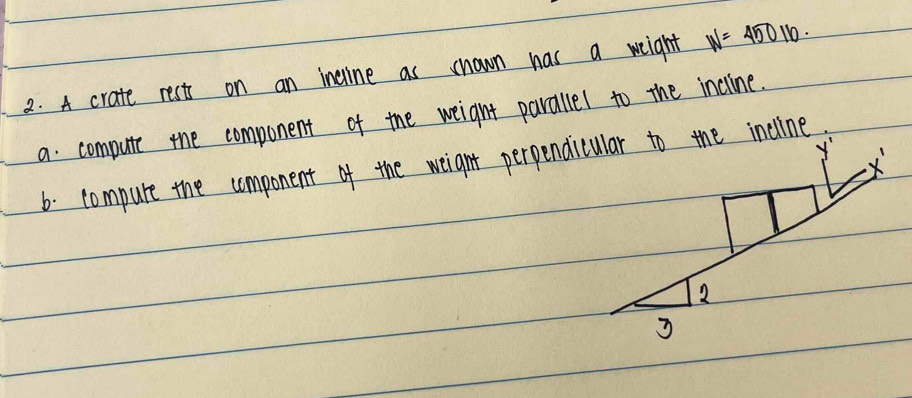 2. A crate rests on an incline as shown has a weight W= 450 lb.
a. compute the component of the weight parallel to the incline.
b. compute the component of the weight perpendicular to the incline.
y'
x'
2
3